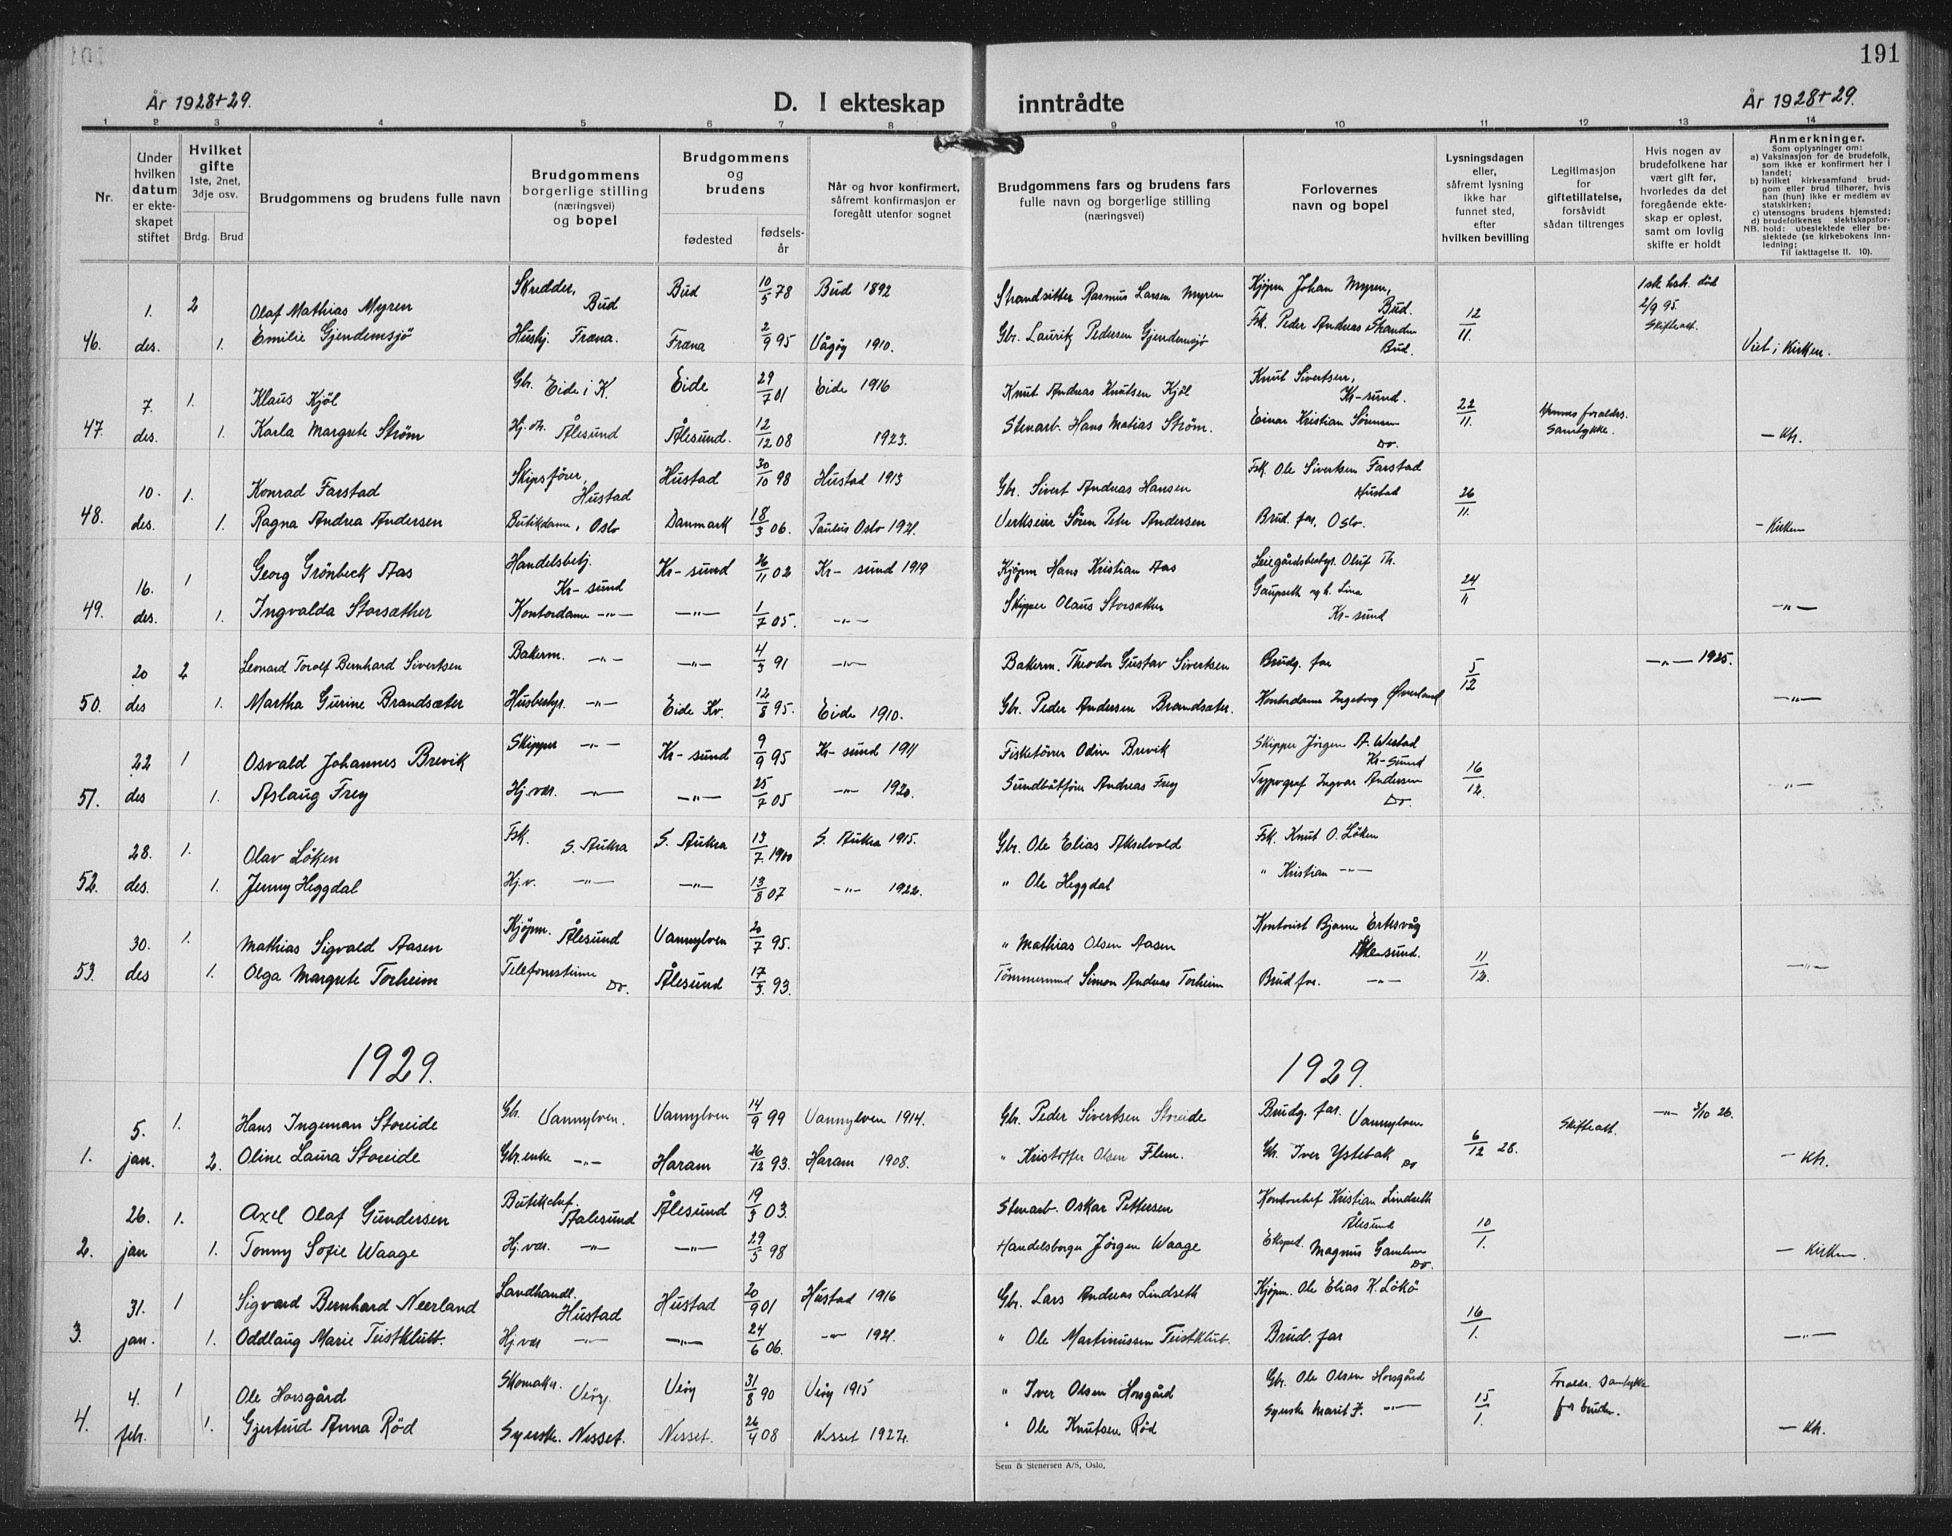 191
År 1928+29.
D. I ekteskap inntrådte
År 1928+29.
1 2 3 4 5 6 7 8 9 10 11 12 13 14
Nr.
Under hvilken datum er ekteskapet stiftet
Hvilket gifte
1ste, 2net, 3dje osv.
Brdg. Brud
Brudgommens og brudens fulle navn
Brudgommens borgerlige stilling (næringsvei) og bopel
Brudgommens og brudens
fødested
fødselsår
Når og hvor konfirmert, såfremt konfirmasjon er foregått utenfor sognet
Brudgommens fars og brudens fars fulle navn og borgerlige stilling (næringsvei)
Forlovernes navn og bopel
Lysningsdagen eller, såfremt lysning ikke har funnet sted, efter hvilken bevilling
Legitimasjon for giftetillatelse, forsåvidt sådan tiltrenges
Hvis nogen av brudefolkene har vært gift før, hvorledes da det foregående ekteskap er opløst, samt om lovlig skifte er holdt
Anmerkninger.
Som oplysninger om:
a) Vaksinasjon for de brudefolk, som ikke er konfirmert her i landet;
b) hvilket kirkesamfund brudgom eller brud tilhører, hvis han (hun) ikke er medlem av statskirken;
c) utensogns brudens hjemsted;
d) brudefolkenes slektskapsforhold: ubeslektede eller beslektede (se kirkebokens innledning;
NB.
Til iakttagelse II. 10).
1. 2 Olaf Mathias Myren Skredder, Bud Bud 10/5 78 Bud 1892 Strandsitter Rasmus Larsen Myren Kjøpm Johan Myren, Bud. 12/11. 1ste hsh. död 2/9 95. Skifteatt.
46. des. 1. Emilie Gjendemsjø Hushj. Fræna. Fræna 2/9 95 Vågøy 1910. Gbr. Lauritz Pedersen Gjendemsjø Fsk. Peder Andreas Strander Bud. Viet i Kirken.
7. 1. Klaus Kjøl Gbr. Eide i K. Eide 29/7 01 Eide 1916 Knut Andreas Knutsen Kjøl Knut Sivertsen, Kr-sund. 22/11.
47. des. 1. Karla Margrete Strøm Hj. dt. Ålesund Ålesund. 12/12 08 1923. Stenarb. Hans Matias Strøm. Einar Kristian Sørensen Do. foreldes. Samtykke. — Kh.
10. 1. Konrad Farstad Skipsfører, Hustad Hustad 30/10 98 Hustad 1913 Gbr. Sivert Andreas Hansen Fsk. Ole Sivertsen Farstad Hustad 26/11.
48. des. 1. Ragna Andrea Andersen Butikdame, Oslo Danmark 18/3 06. Paulus Oslo 1921. Verkseier Sören Petr Andersen Brud. far, Oslo. — Kirken
16. 1 Georg Grönbeck Aas Handelsbetj. Kr-sund Kr-sund 26/11 02 Kr-sund 1919 Kjøpm Hans Kristian Aas Leiegårdsbestyr. Oluf Th. 24/11
49. des. 1. Ingvalda Storsæther Kontordame —"— —"— 1/7 05. —"— Skipper Olaus Storsæther Gaupseth og h. Lina Kr-sund —"—
20 2 Leonard Torolf Bernhard Sivertsen Bakerm. —"— —"— 4/3 91 —"— Bakerm. Theodor Gustav Sivertsen Brudg. far 5/12 —"— 1925.
50. des 1. Martha Gurine Brandsæter Husbestyr. —"— Eide Kv. 12/8 95. Eide 1910. Gbr. Peder Andersen Brandsæter. Kontordame Ingeborg Øverland —"—
22 1 Osvald Johannes Brevik Skipper —"— Kr-sund 9/9 95 Kr-sund 1911 Fisketörrer Odin Brevik Skipper Jörgen A. Westad Kr-sund 16/12.
51. des 1. Aslaug Frey Hj. vær. —"— —"— 25/7 05 —"— 1920. Sundbåtförer Andreas Frey Typograf Ingvar Andersen Do. —"—
28. 1. Olav Löken Fsk. S. Aukra S. Aukra 13/7 1900 S. Aukra 1915. Gbr. Ole Elias Akselvold Fsk. Knut O. Löken
52. des. 1. Jenny Heggdal Hj. v. —"— —"— 13/8 07 —"— 1922. " Ole Heggdal " Kristian —"—
30. 1. Mathias Sigvald Aasen Kjøpm. Ålesund Vannylven 20/7 95. " Mathias Olsen Aasen Kontorist Bjarne Eiksvåg Ålesund. 11/12.
53. des 1. Olga Margrete Torheim Telefonistinne Do. Ålesund 17/3. 93. Tömmermand Simon Andreas Torheim Brud far. —"— —"—
1929. 1929.
5. 1. Hans Ingeman Storeide Gbr. Vannylven. Vannylven 14/9 99 Vannylven 1914. Gbr. Peder Sivertsen Storeide Brudg. far. Vannylven 6/12 28. Skifteatt. —"— 3/10 26.
1. jan. 2. Oline Laura Storeide Gbr. enke —"— Haram 26/12 93. Haram 1908. " Kristoffer Olsen Flem. Gbr. Iver Ystebak Do — Kh.
26. 1. Axel Olaf Gundersen Butikchef Aalesund Ålesund 19/3 03. Stenarb. Oskar Pettersen Kontorchef Kristian Lindseth Ålesund 10/1.
2. jan 1. Tonny Sofie Waage Hj. vær. —"— —"— 29/5 98 Handelsborger Jörgen Waage Eksped. Magnus Do. — Kirken.
31. 1 Sigvard Bernhard Neerland Landhandl. Hustad Hustad 20/9 01 Hustad 1916 Gbr. Lars Andreas Lindseth Kjøpm. Ole Elias K. Lökö 16/1.
3. jan 1. Oddlaug Marie Teistklubb. Hj. vær —"— —"— 24/6 06. —"— 1921. " Ole Martinussen Teistklub. Brud. far —"—
4. 1 Ole Horsgård Skomaker. Veöy. Veöy 31/8 90 Veöy 1915 " Iver Olsen Horsgård Gbr. Ole Olsen Horsgård 15/1. Foreldr. Samtykke for bruden.
4. febr. 1. Gjertrud Anna Röd Syerske. Nesset. Nesset. 26/4 08 Nesset 1924. " Ole Knutsen Röd Syerske Marit J. —"— — Kh.
Sem & Stenersen A/S, Oslo.